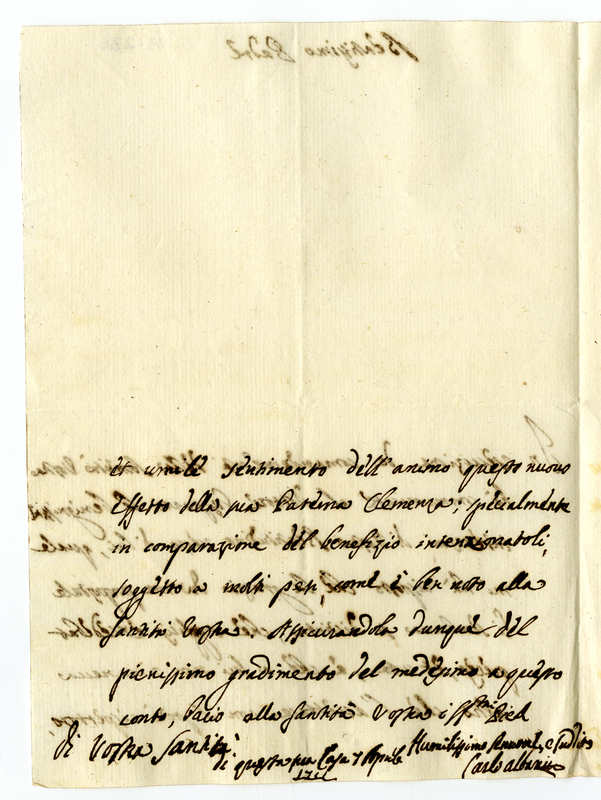 et umilé séntimento déll' animo questo nuovo
éffetto della sua Paterna Clemenza; spécialmente
in comparazione dél benefizio intenzionatoli,
soggetto a molti pesi, comé è ben noto alla
Santità Vostra. Assicurandola dunqué dél
pienissimo gradimento del medésimo a questo
conto, bacio alla Santità Vostra i SSmi Piedi
Di Vostra Santità
Di questa sua Casa 7 Aprile
Humilissimo Servitore, e Suddito
Carlo Albani